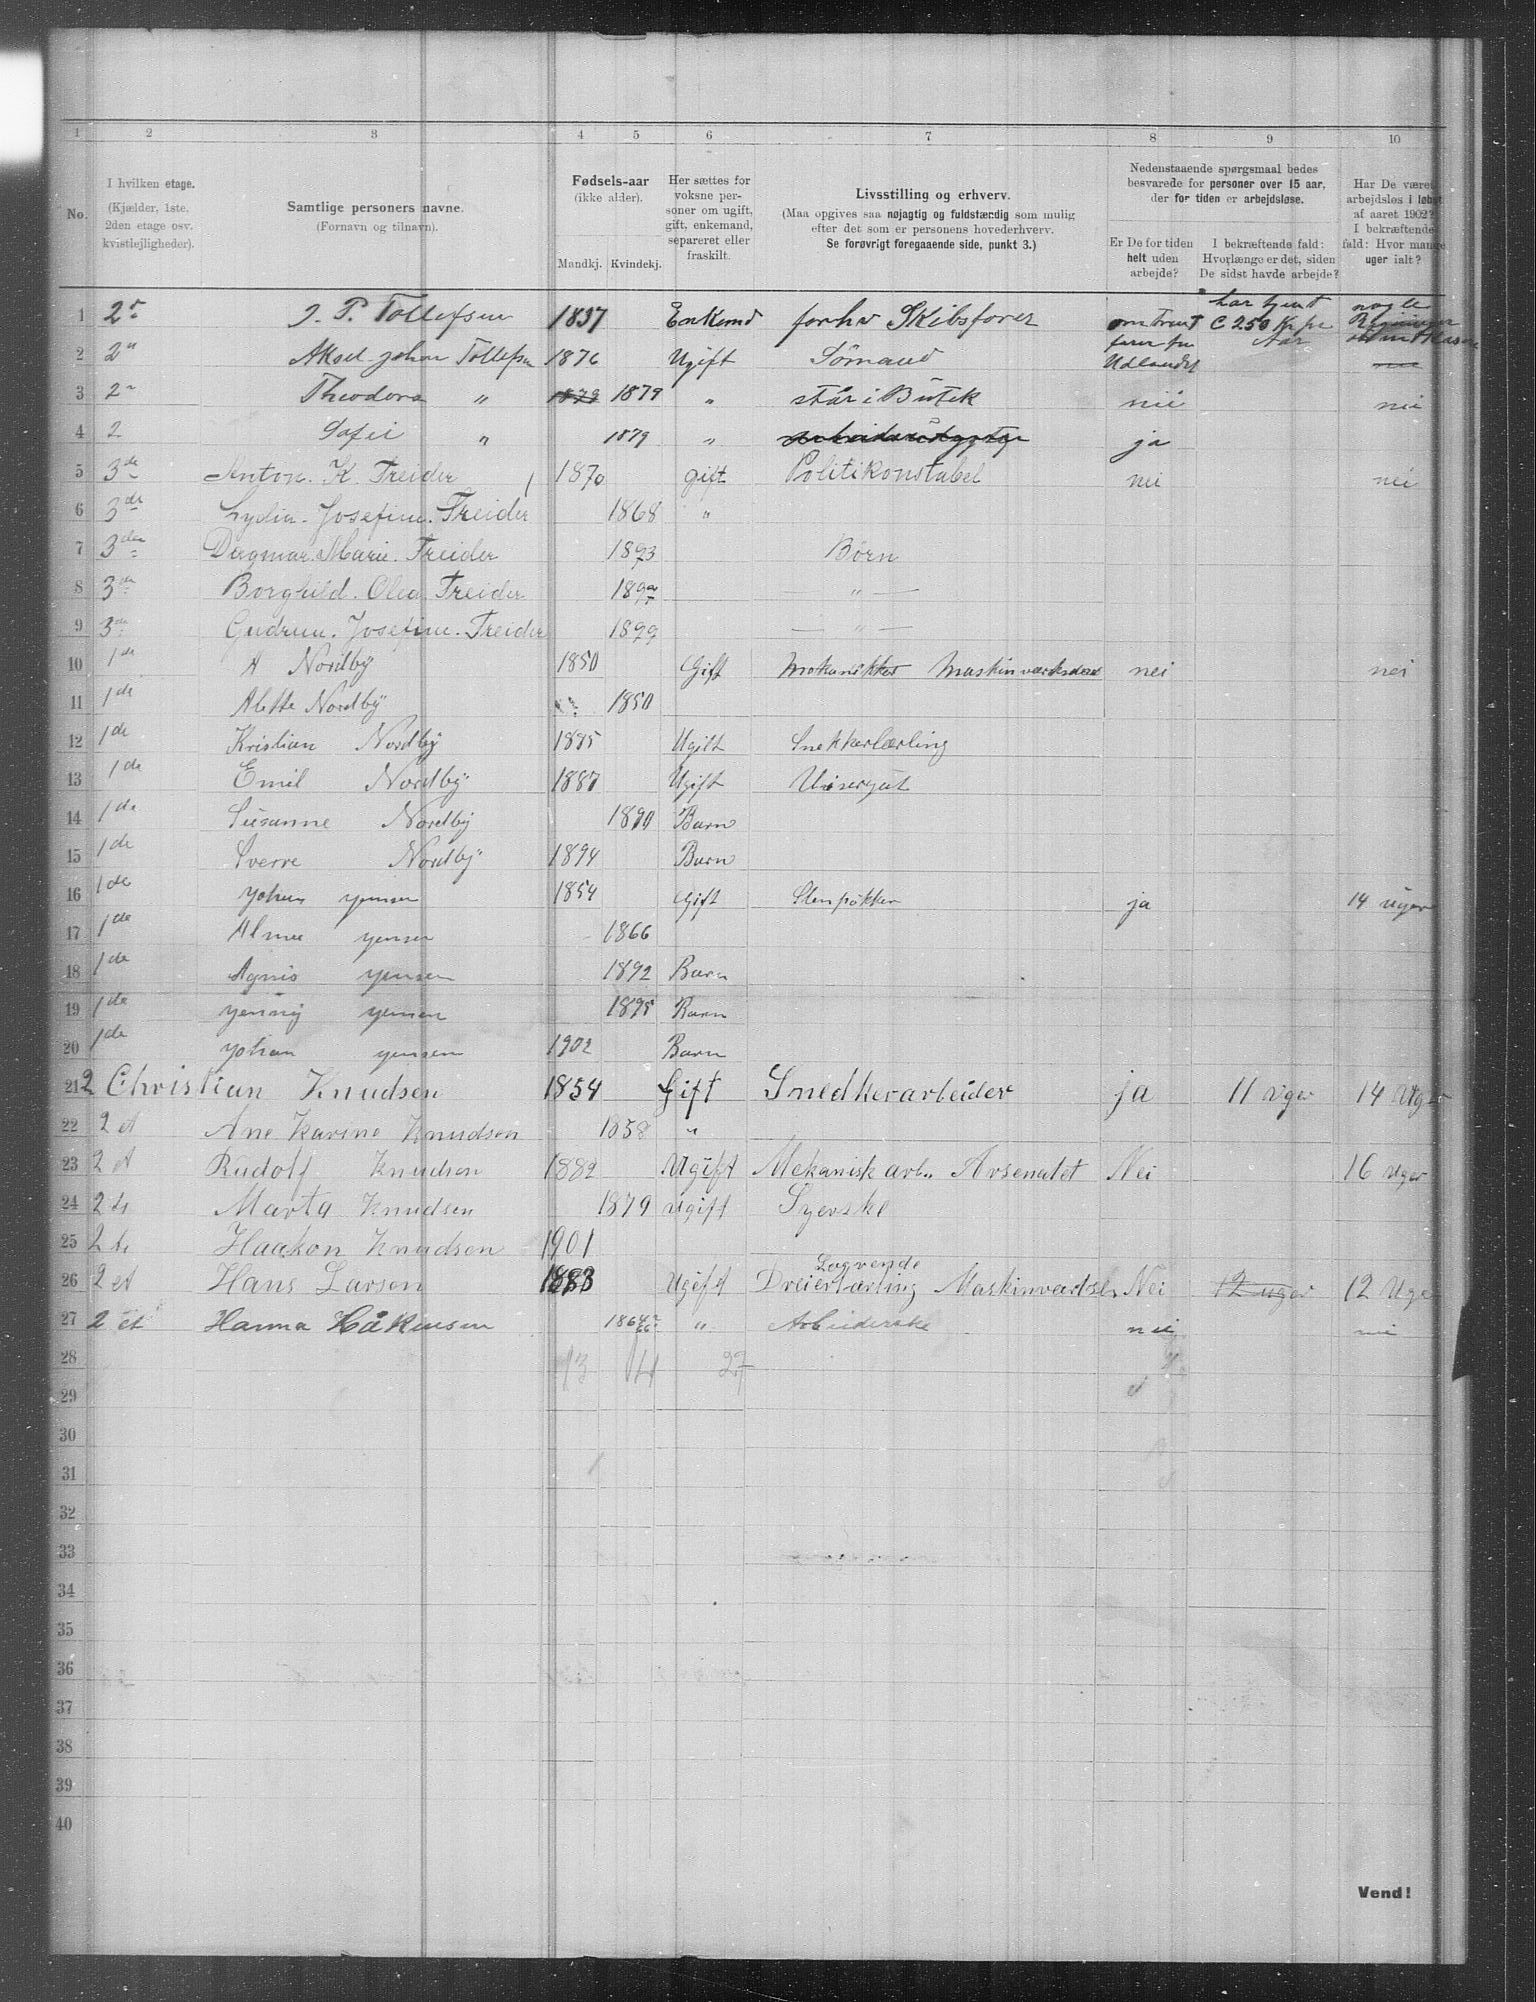 1 2 3 4 5 6 7 8 9 10
No.
I hvilken etage.
(Kjælder, 1ste.
2den etage osv.
kvistlejligheder).
Samtlige personers navne.
(Fornavn og tilnavn).
Fødsels-aar
(ikke alder).
Mandkj. Kvindekj.
Her sættes for
voksne per-
soner om ugift,
gift, enkemand,
separeret eller
fraskilt.
Livsstilling og erhverv.
(Maa opgives saa nøjagtig og fuldstændig som mulig
efter det som er personens hovederhverv.
Se forøvrigt foregaaende side, punkt 3.)
Nedenstaaende spørgsmaal bedes
besvarede for personer over 15 aar,
der for tiden er arbejdsløse.
Er De for tiden
helt uden
arbejde?
I bekræftende fald:
Hvorlænge er det, siden
De sidst havde arbejde?
Har De været
arbejdsløs i løbet
af aaret 1902?
I bekræftende
fald: Hvor mange
uger ialt?
1 2 J. P. Tollefsen 1837 Enkemd forhv Skibsfører har tjent C 250 Kr pr Aar nogle
2 2 Aksel Johan Tollefsen 1876 Ugift Sömand farer fra Udlandet
3 2 Theodora " 1879 1879 " står i Butik nei nei
4 2 Sofie " 1879 " ja
5 3de Anton. K. Freider 1870 gift Politikonstabel nei nei
6 3de Lydia. Josefine. Freider 1868 "
7 3den Dagmar. Marie. Freider 1893 Børn
8 3de Borghild. Olea. Freider "
9 3de Gudrun. Josefine. Freider 1899 "
10 1de A Nordby 1850 Gift Mekanikker Maskinværksted nei nei
11 1de Alette Nordby 1850
12 1de Kristian Nordby 1885 Ugift Snekkerlærling
13 1de Emil Nordby 1887 Ugift Visergut
14 1de Susanne Nordby 1890 Barn
15 1de Sverre Nordby 1894 Barn
16 1de Yohan Yensen 1854 Gift Stenpikker ja 14 uger
17 1de Alma Yensen 1866
18 1de Agnis Yensen 1892 Barn
19 1de Yenny Yensen 1895 Barn
20 1de Yohan Yensen 1902 Barn
21 2 Christian Knudsen 1854 Gift Snedkerarbeider ja 11 Uger 14 Uger
22 2 et Ane Karine Knudsen 1858 "
23 2 et Rudolf Knudsen 1882 Ugift Mekanisk arb. Arsenalet Nei 16 Uger
24 2 et Marta Knudsen 1879 Ugift Syerske
25 2 et Haakon Knudsen 1901
26 2 et Hans Larsen 1883 Ugift Dreierlærling Maskinværksd. Nei 12 uger 12 Uger
27 2 et Hanna Håkensen " Arbeiderske nei nei
28 13 14 27
29
30
31
32
33
34
35
36
37
38
39
40
Vend!